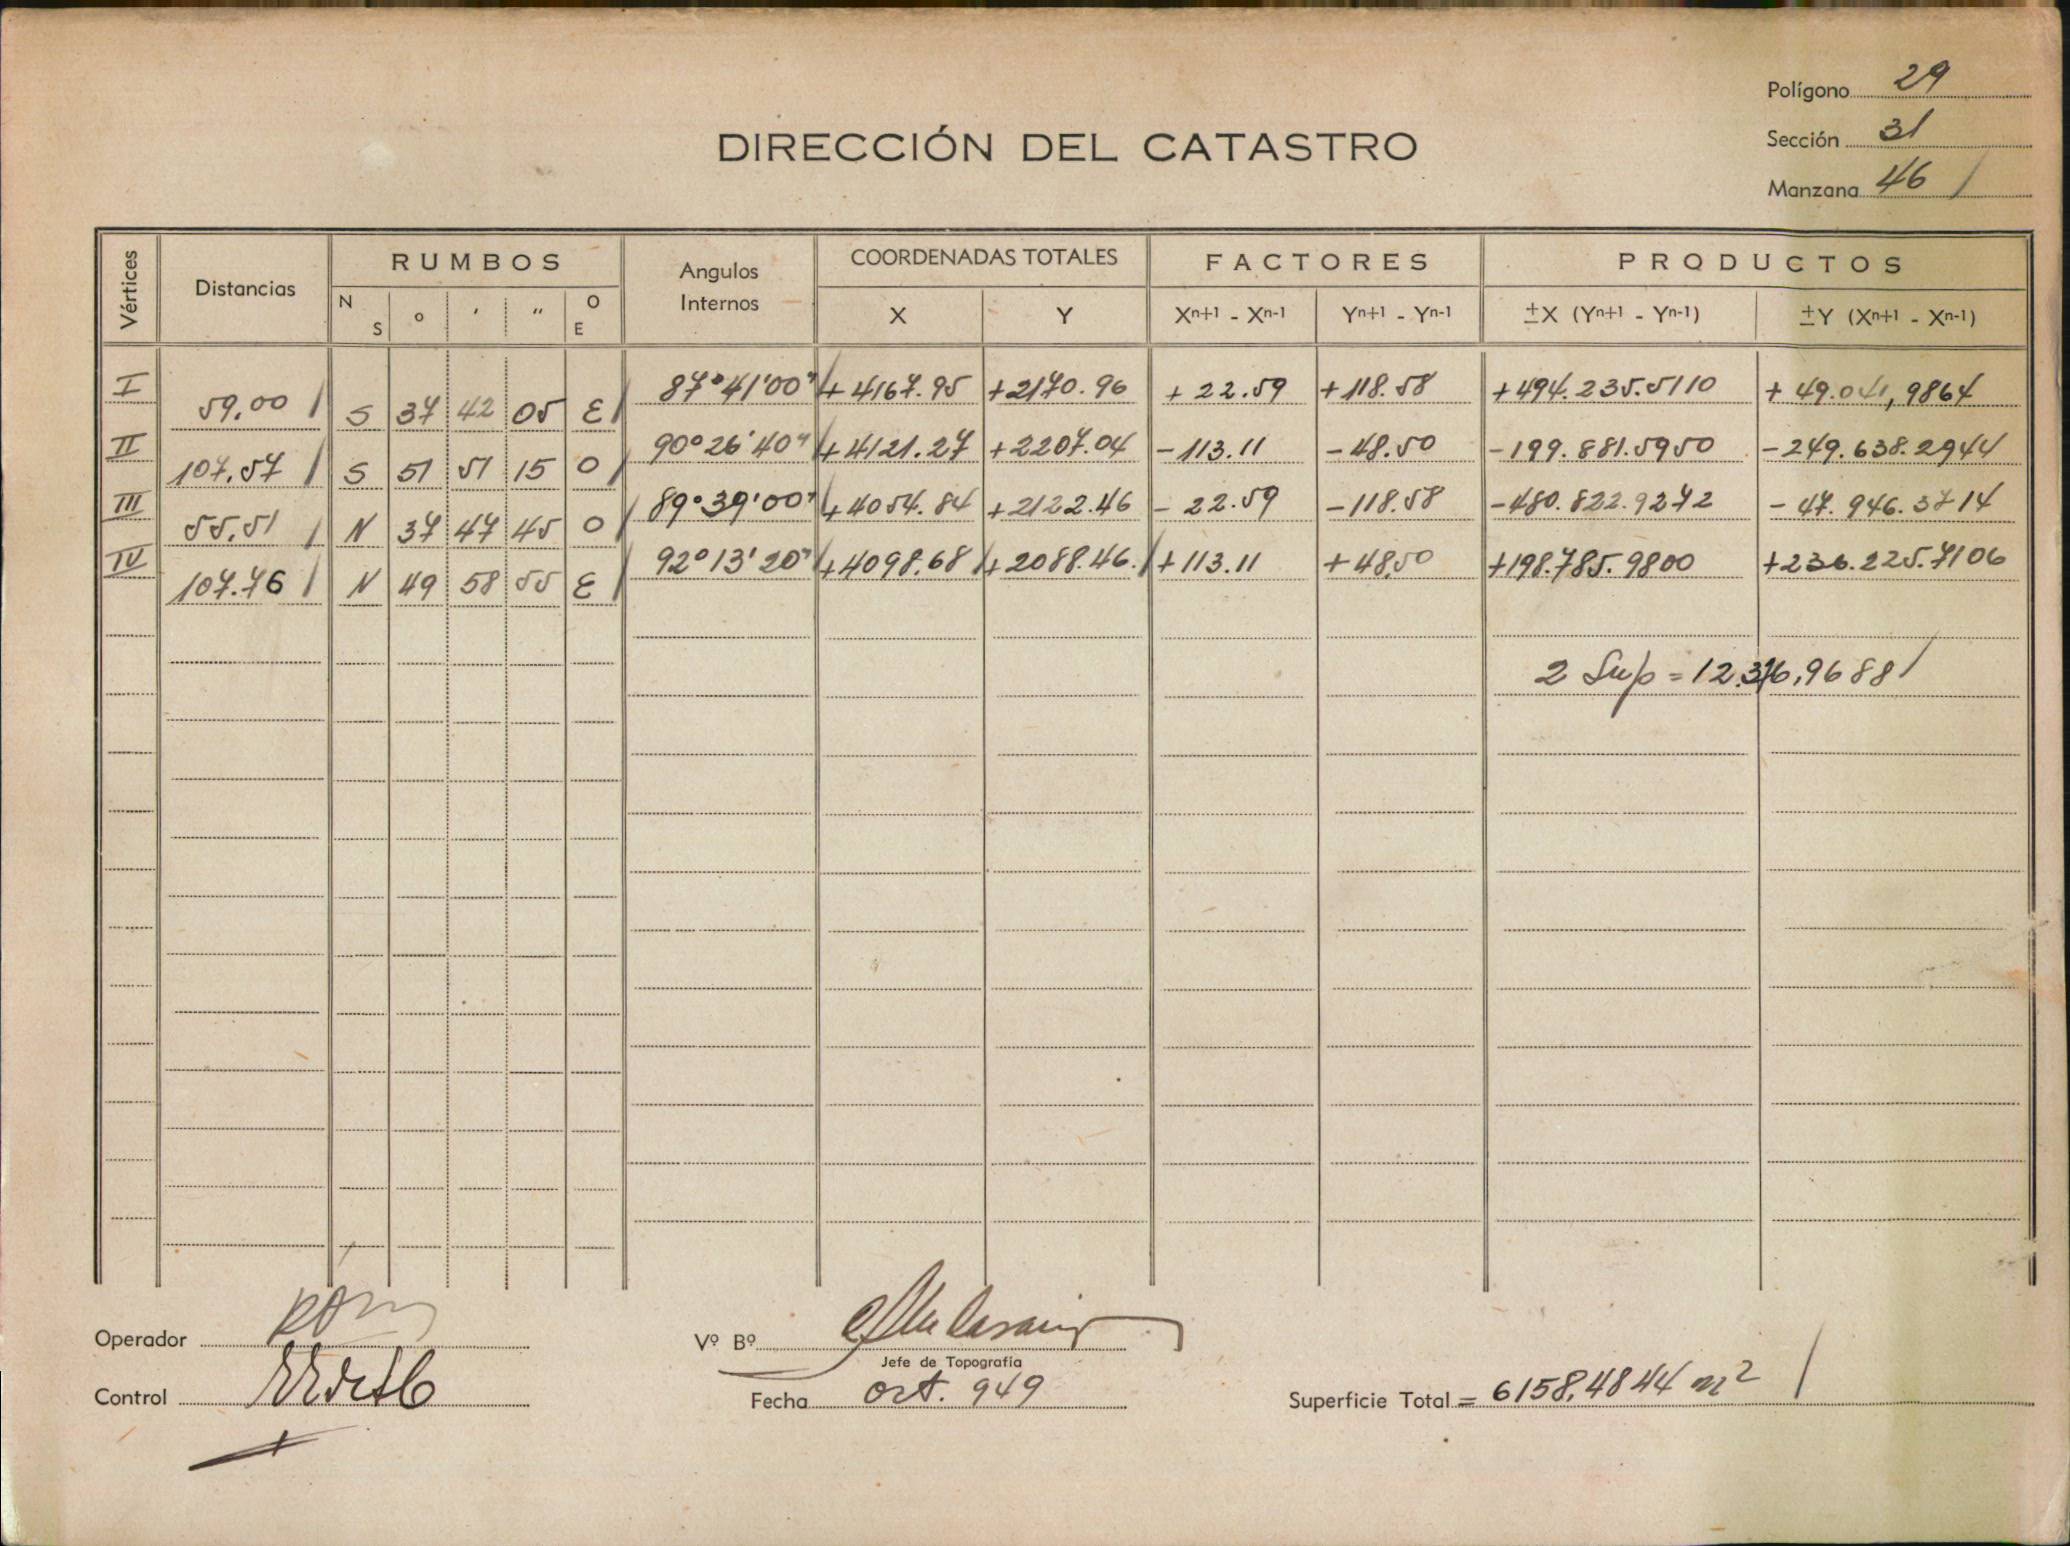 Polígono 29
DIRECCIÓN DEL CATASTRO
Sección 31
Manzana 46
Vértices Distancias RUMBOS Angulos Internos COORDENADAS TOTALES FACTORES PRODUCTOS
N S ° ' " O E X Y Xn+1 - Xn-1 Yn+1 - Yn-1 ±X (Yn+1 - Yn-1) ±Y (Xn+1 - Xn-1)
I 87°41'00" +4167.95 +2170.96 +22.59 +118.58 +494.235.5110 +49.041,9864
59.00 S 37 42 05 E
II 90°26'40" +4121.27 +2207.04 -113.11 -48.50 -199.881.5950 -249.638.2944
107.57 S 51 51 15 O
III 89°39'00" +4054.84 +2122.46 -22.59 -118.58 -480.822.9272 -47.946.3714
55.51 N 37 47 45 O
IV 92°13'20" +4098.68 +2088.46. +113.11 +48.50 +198.785.9800 +236.225.7106
107.76 N 49 58 55 E
2 Sup = 12.316,9688
Operador
Vº Bº
Jefe de Topografía
Control
Fecha Oct. 949
Superficie Total = 6158,4844 m²